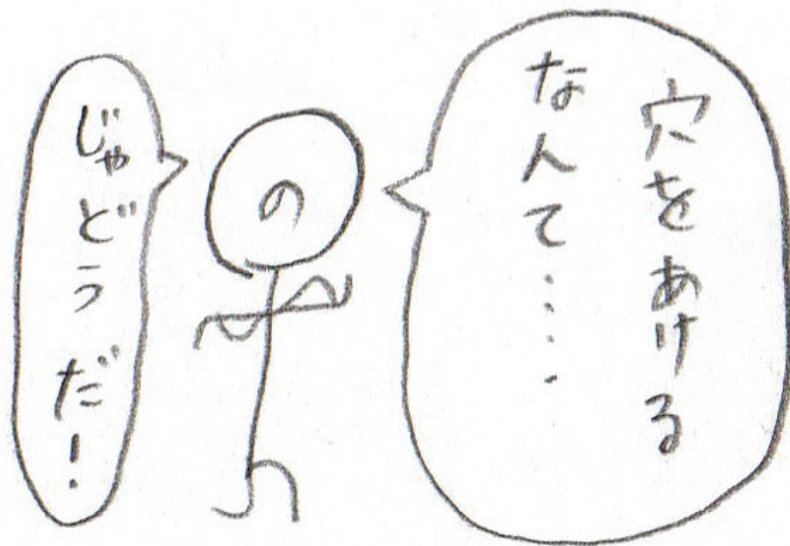 穴をあける
なんて……
の
じゃどうだ!